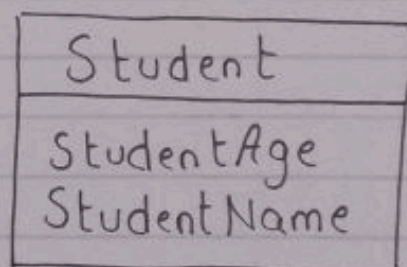 Student
StudentAge
StudentName